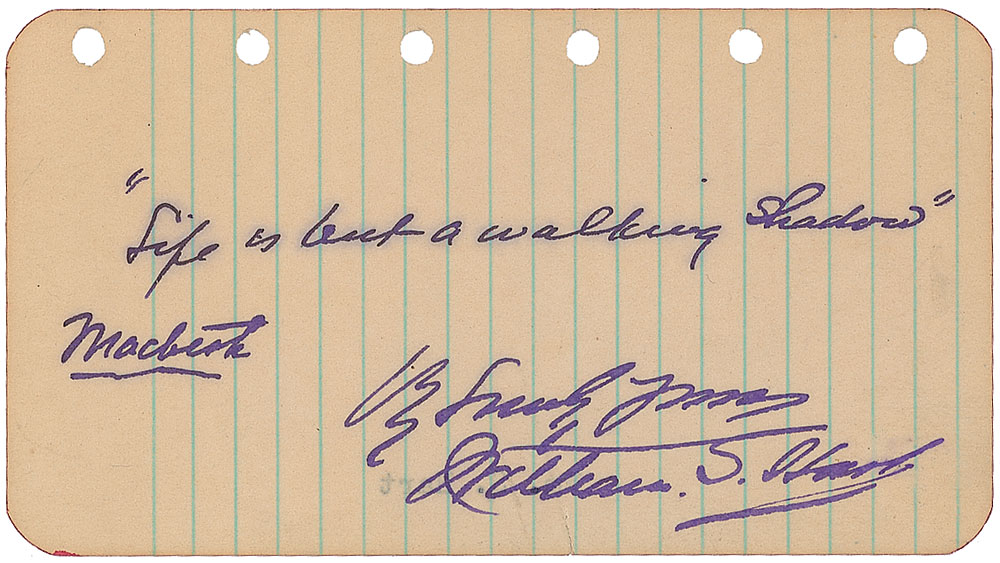 "Life is but a walking Shadow"
Macbeth
Yours
William. S. Hart